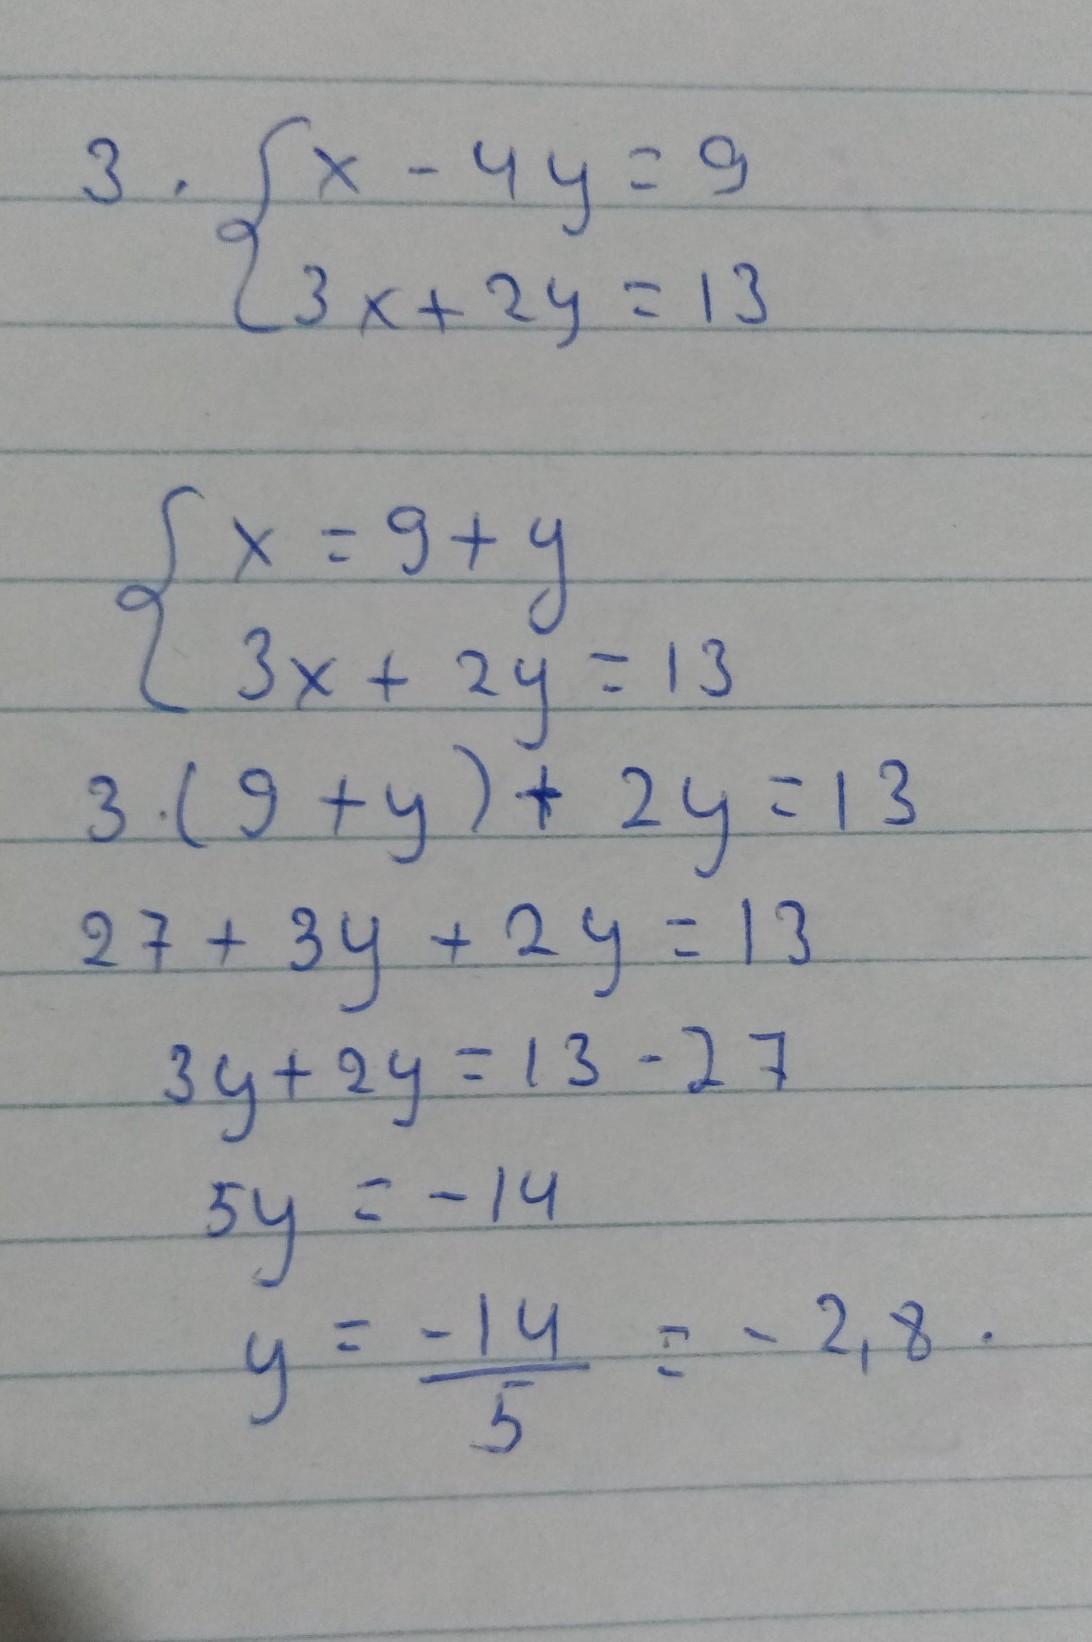 3. { x - 4y = 9
3x + 2y = 13
{ x = 9 + y
3x + 2y = 13
3·(9 + y) + 2y = 13
27 + 3y + 2y = 13
3y + 2y = 13 - 27
5y = -14
y = -14/5 = -2,8.